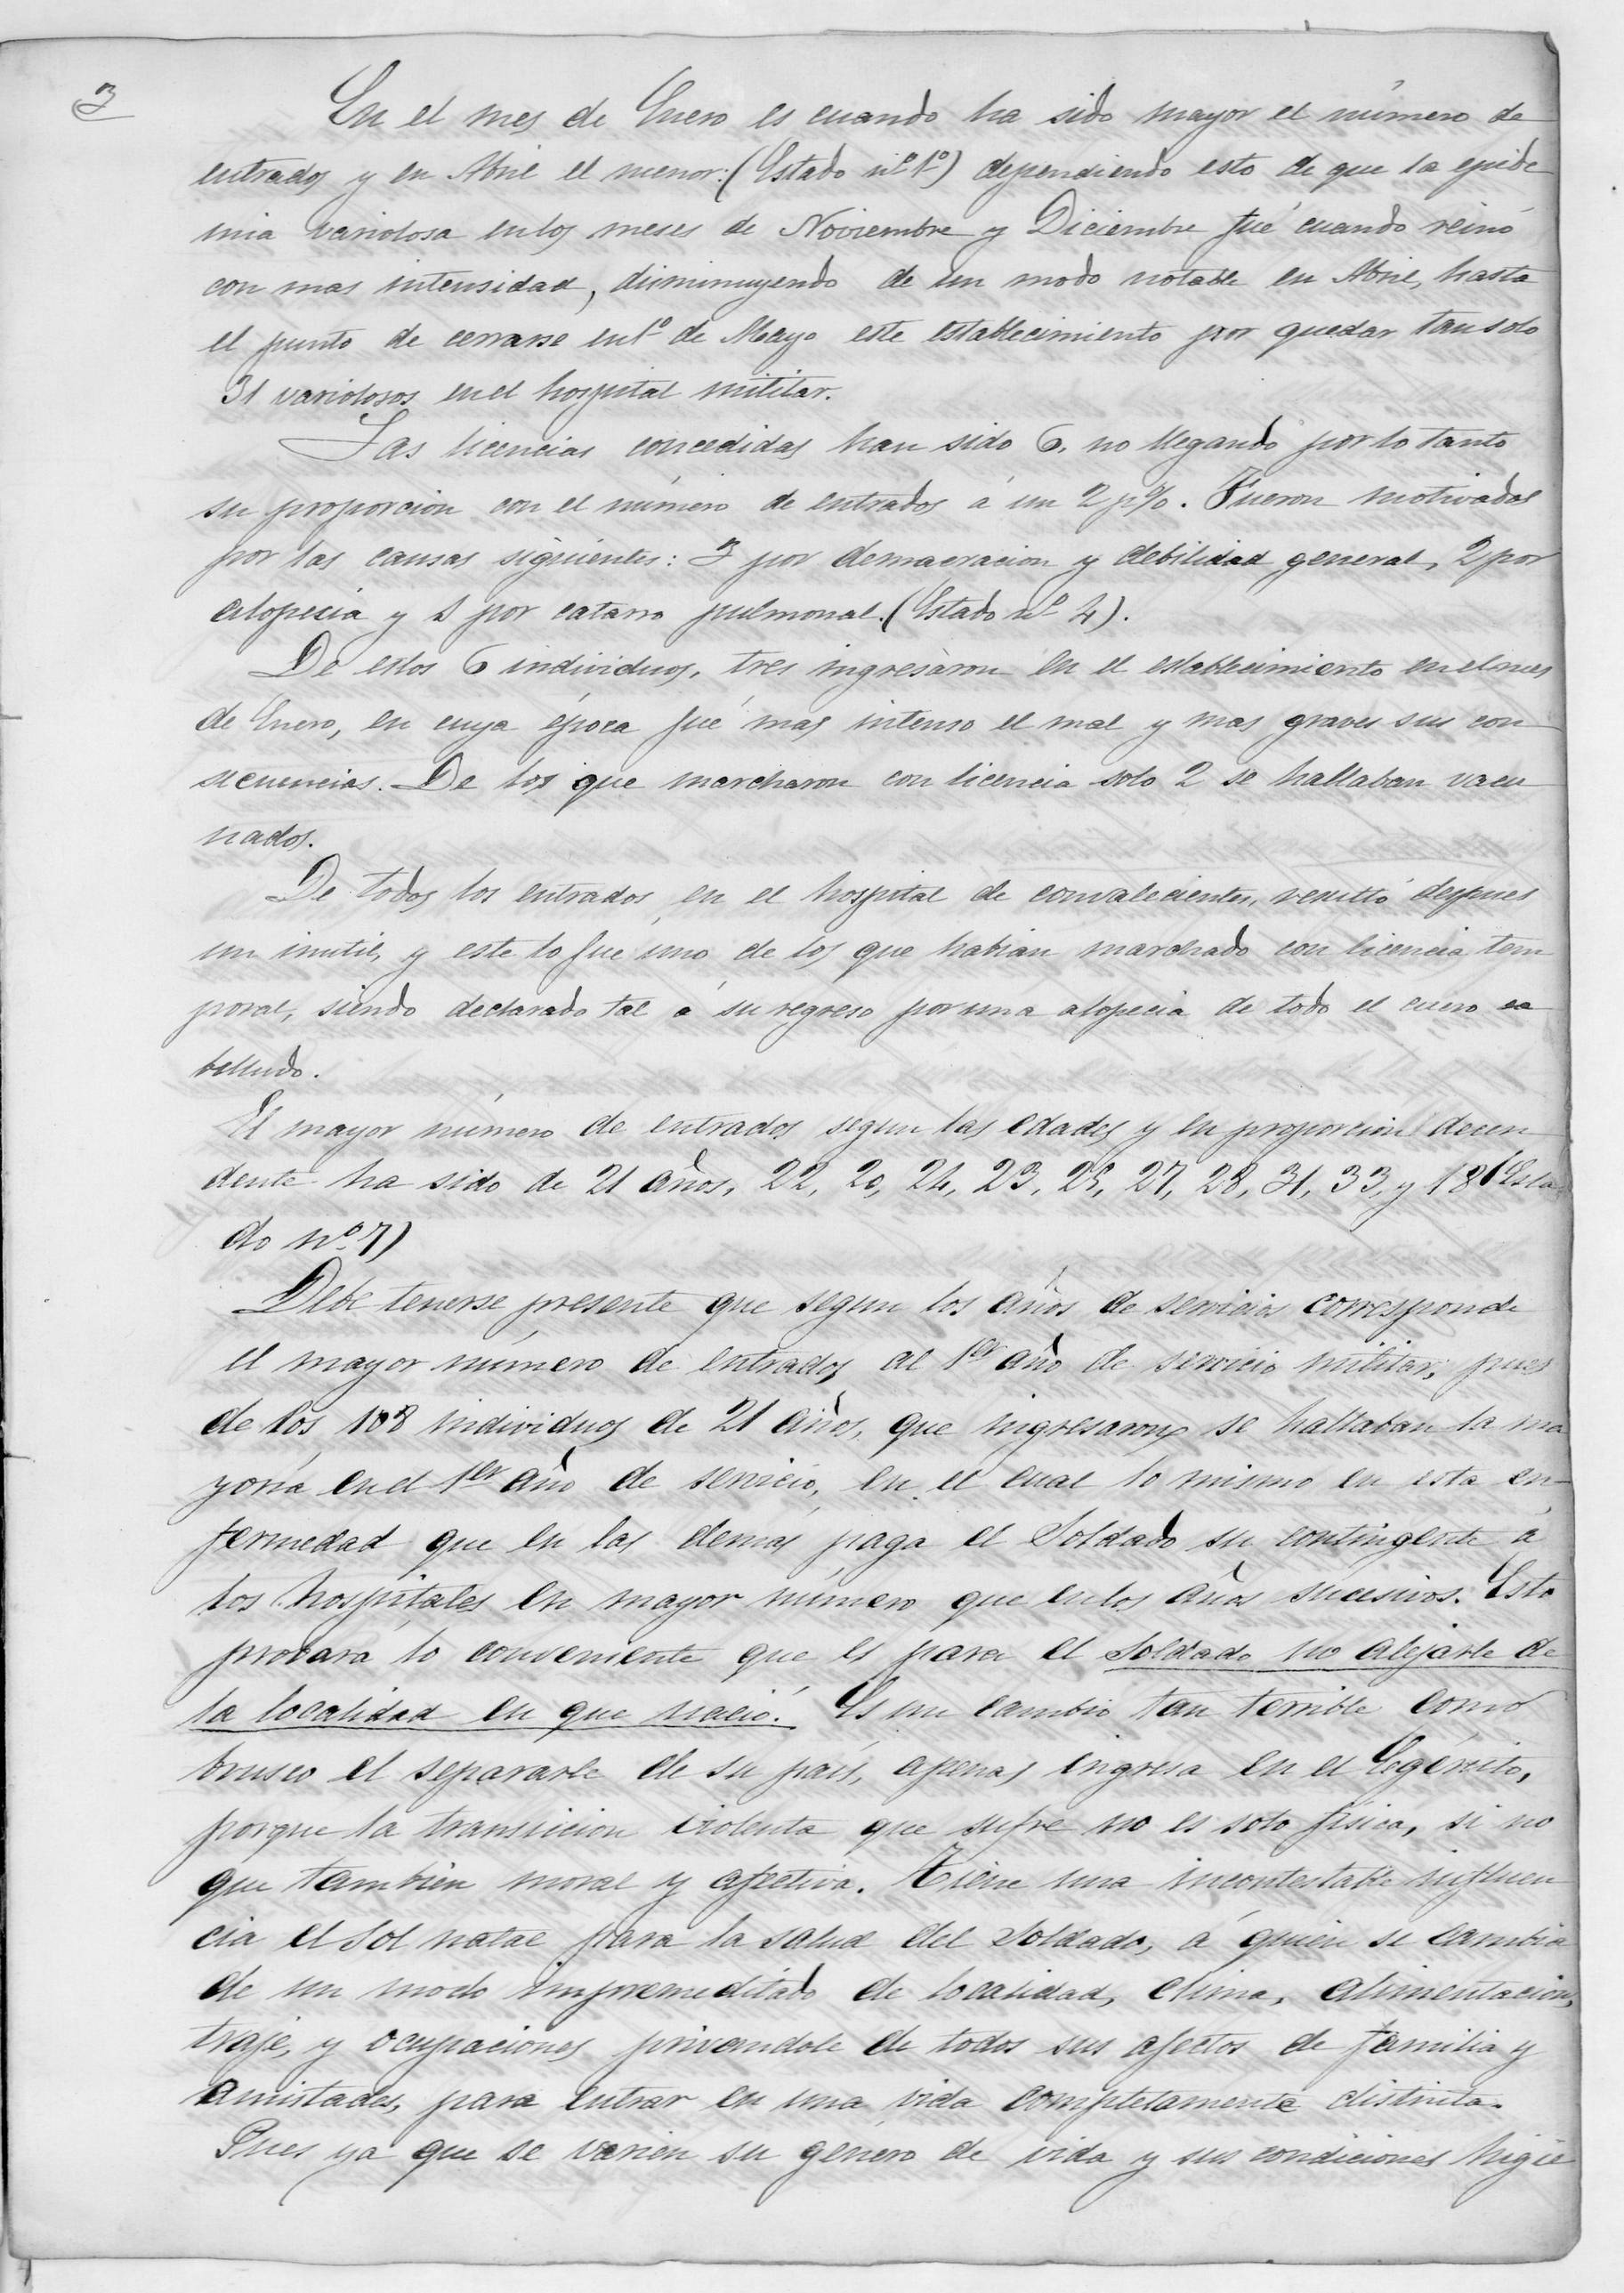 3
En el mes de Enero es cuando ha sido mayor el número de
entrados y en Abril el menor: (Estado nº 1º) dependiendo esto de que la epide
mia variolosa en los meses de Noviembre y Diciembre fué cuando reinó
con mas intensidad, disminuyendo de un modo notable en Abril, hasta
el punto de cerrarse en 1º de Mayo este establecimiento por quedar tan solo
31 variolosos en el hospital militar.
Las licencias concedidas han sido 6, no llegando por lo tanto
su proporcion con el número de entrados á un 2 p%. Fueron motivadas
por las causas siguientes: 3 por demacracion y debilidad general, 2 por
alopecia y 1 por catarro pulmonal. (Estado nº 4).
De estos 6 individuos, tres ingresaron en el establecimiento en el mes
de Enero, en cuya época fué mas intenso el mal y mas graves sus con
secuencias. De los que marcharon con licencia solo 2 se hallaban vacu
nados.
De todos los entrados en el hospital de convalecientes, resultó despues
un inutil, y este lo fué uno de los que habian marchado con licencia tem
poral, siendo declarado tal á su regreso por una alopecia de todo el cuero ca
belludo.
El mayor número de entrados segun las edades y en proporcion decen
dente ha sido de 21 años, 22, 20, 24, 23, 25, 27, 28, 31, 33, y 18 (Esta
do nº 7)
Debe tenerse presente que segun los años de servicios corresponde
el mayor número de entrados al 1er año de servicio militar, pues
de los 108 individuos de 21 años, que ingresaron se hallaban la ma
yoría en el 1er año de servicio, en el cual lo mismo en esta en-
fermedad que en las demás paga el Soldado su contingente á
los hospitales en mayor número que en los años sucesivos. Esto
probará lo conveniente que es para el soldado no alejarle de
la localidad en que nació. Es un cambio tan terrible como
brusco el separarle de su país, apenas ingresa en el Egército,
porque la transicion violenta que sufre no es solo física, si no
que tambien moral y afectiva. Tiene una incontestable influen
cia el sol natal para la salud del Soldado, á quien se cambia
de un modo impremeditado de localidad, clima, alimentacion,
traje, y ocupaciones privandole de todos sus afectos de familia y
amistades, para entrar en una vida completamente distinta.
Pues ya que se varien su género de vida y sus condiciones higié